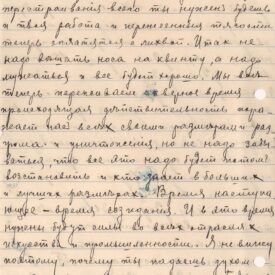 перестраивается всего ты нужен будешь
и твоя работа и перенесенныя тяжести
теперь оплатятся с лихвой. Итак не
надо вешать носа на квинту, а надо
мужаться и все будет хорошо. Мы все
теперь переживаем время
происходящая действительность
нас всех своими размерами раз
грома и уничтожения, но не надо забы
ваться, что все это надо будет потом
восстановить и в больших
и лучших размерах. Время наступа
ющее – время созидания. И в это время
нужны будут силы во всех отраслях
искусства и промышленности. Я не вижу
поэтому, почему ты падаешь духом